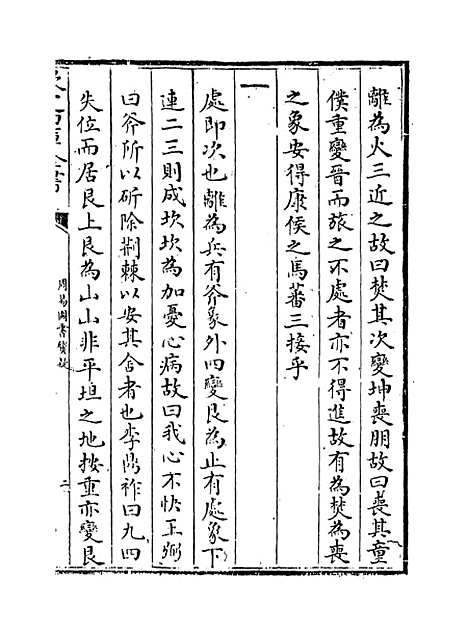 離為火三近之故曰焚其次變坤喪朋故曰喪其童
僕重變晉而旅之不處者亦不得進故有為焚為喪
之象安得康侯之馬蕃三接乎
一
處即次也離為兵有斧象外四變艮為止有處象下
連二三則成坎坎為加憂心病故曰我心不快王弼
曰斧所以斫除荆棘以安其舍者也李鼎祚曰九四
失位而居艮上艮為山山非平坦之地按重亦變艮
周易圖書質疑
二